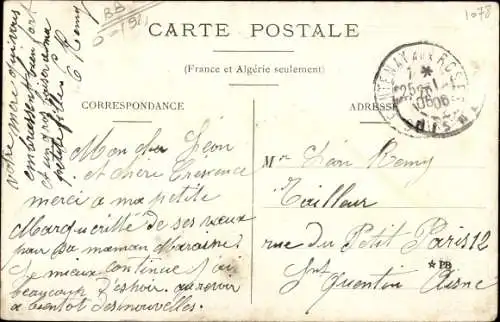 1078
CARTE POSTALE
(France et Algérie seulement)
CORRESPONDANCE
ADRESSE
FONTENAY AUX ROSES
SEINE
Mon cher Léon
et chère Crescence
merci à ma petite
de ses vœux
pour sa maman marraine
mieux continue j'ai
beaucoup d'espoir. au revoir
a bientot des nouvelles.
votre mère qui vous
embrassent bien fort
et un gros baiser a ma
petite fille E Remy
Mr Léon Remy
Tailleur
rue du Petit Paris 12
Snt Quentin Aisne
★PB